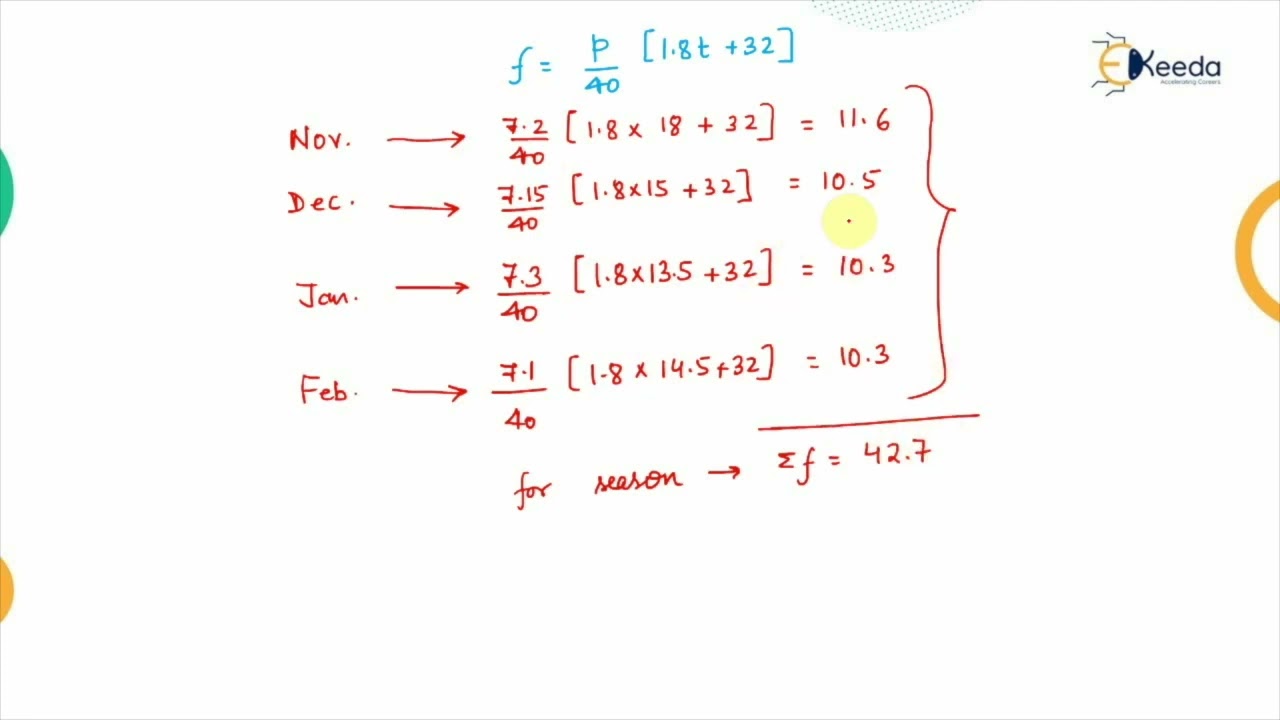 f = p/40 [1.8t + 32]
EKeeda
Accelerating Careers
Nov. → 7.2/40 [1.8 × 18 + 32] = 11.6
Dec. → 7.15/40 [1.8×15 + 32] = 10.5
Jan. → 7.3/40 [1.8×13.5 + 32] = 10.3
Feb. → 7.1/40 [1.8 × 14.5 + 32] = 10.3
for season → Σf = 42.7